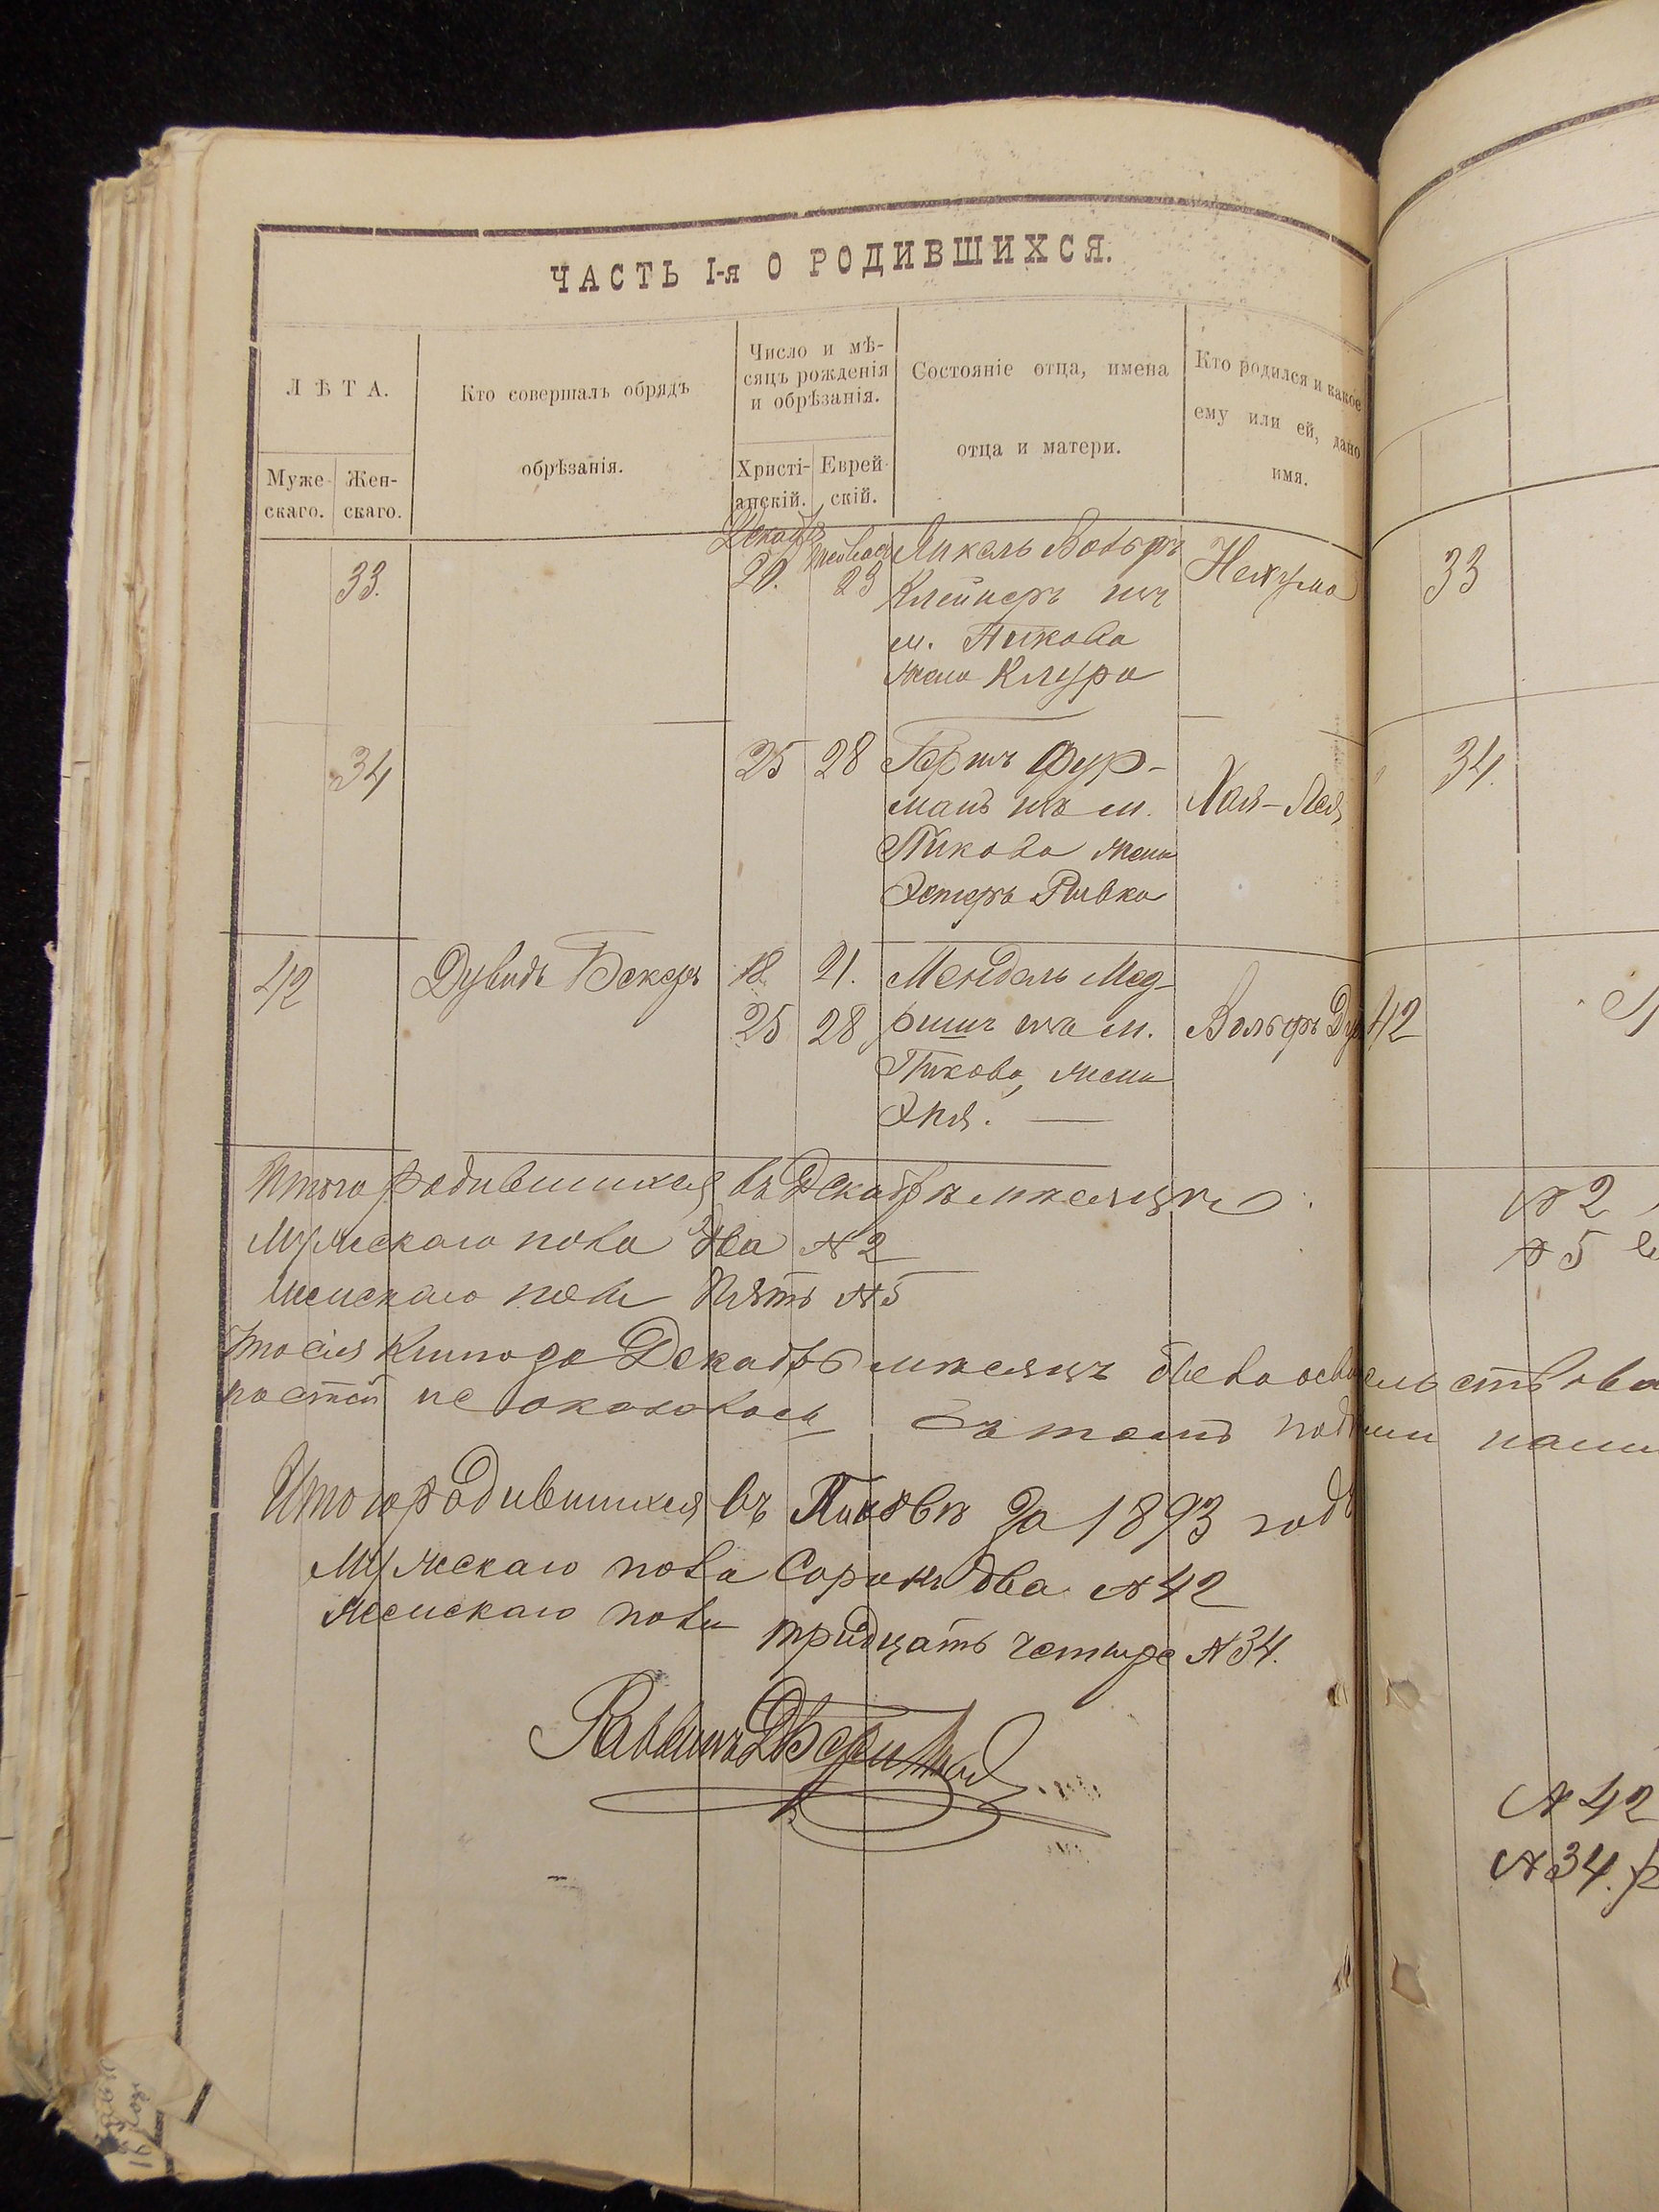 ЧАСТЬ I-я О РОДИВШИХСЯ.
ЛѢТА.
Муже-
скаго.
Жен-
скаго.
Кто совершалъ обрядъ
обрѣзанія.
Число и мѣ-
сяцъ рожденія
и обрѣзанія.
Христі-
анскій.
Еврей-
скій.
Состояніе отца, имена
отца и матери.
Кто родился и какое
ему или ей, дано
имя.
33.
Декабря
20.
23
Вольфъ
Клейнеръ изъ
м. Пикова
жена Клура
Нехума
33
34
25
28
Гершъ Фур-
манъ изъ м.
Пикова жена
Эстеръ Рывка
Хая-Лея
34.
42
Дувидъ Бекеръ
18
21.
25
28
Мендель Мед-
ришъ изъ м.
Пикова, жена
Эня.
Вольфъ Ду
42
Итого родившихся въ Декабрѣ мѣсяцѣ
Мужескаго пола два № 2
Женскаго пола пять № 5
№ 2
№ 5
Что сія книга за Декабрь мѣсяцъ
не оказалось въ томъ
Итого родившихся въ Пиковѣ За 1893 годъ
Мужескаго пола Сорокъ два № 42
Женскаго пола тридцать четыре № 34.
Раввинъ
№ 42
№ 34.